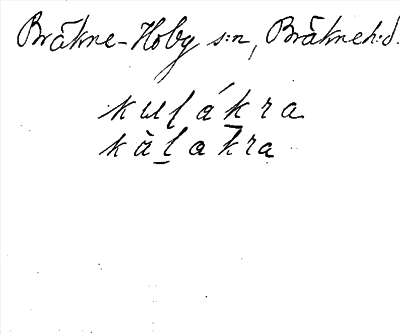 Bräkne-Hoby s:n, Bräkneh:d.
kuɭákra
kàɭakra